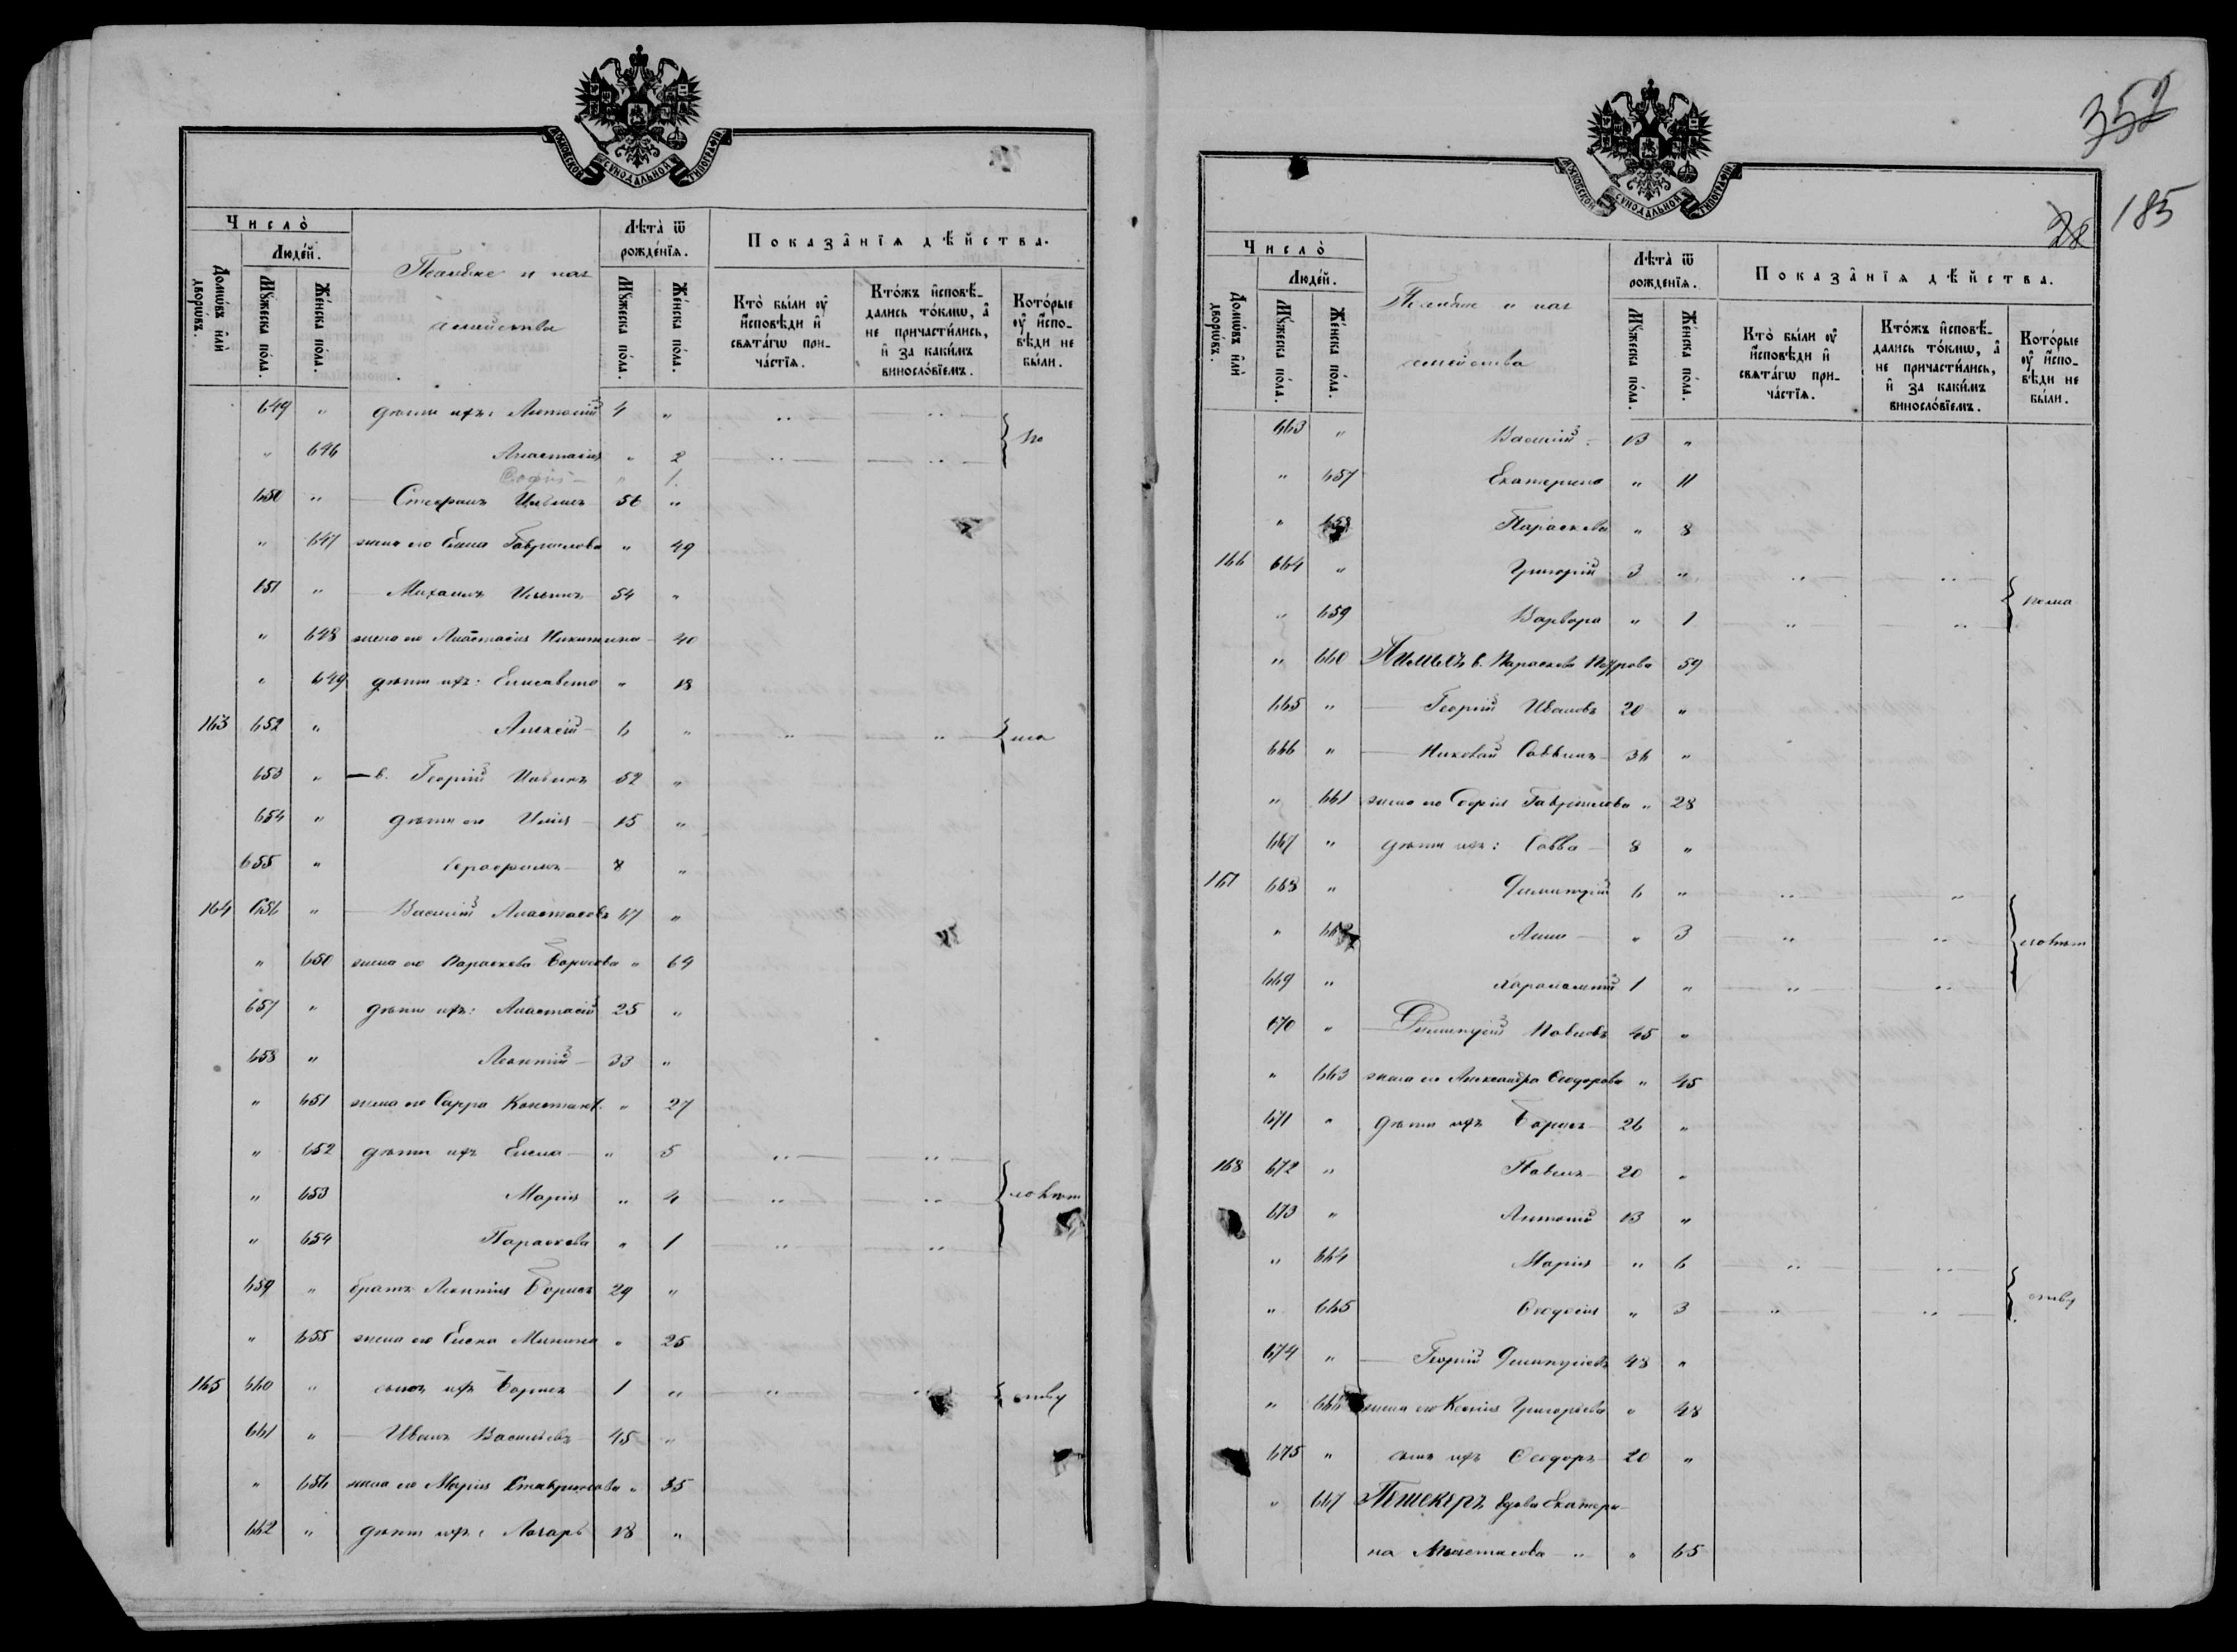 МОСКОВСКОЙ СѴНОДАЛЬНОЙ ТИПОГРАФІИ
Число̀
Людéй.
Домѡ́въ и҆лѝ дворѡ́въ.
Мꙋ́жеска по́ла.
Же́нска по́ла.
семейства
Лѣ́та ѿ рожде́нїѧ.
Мꙋ́жеска по́ла.
Же́нска по́ла.
Показа̑нїѧ дѣ́йства.
Кто̀ были ᲂу҆ и҆сповѣди и҆ свѧта́гѡ прича́стїѧ.
Кто́жъ и҆сповѣ́дались то́кмѡ, а҆ не причасти́лись, и҆ за каки́мъ винослóвїемъ.
Кото́рые ᲂу҆ и҆сповѣди не были.
649 " дѣти ихъ: Антоній 4 "
" 646 Анастасія " 2
Софія - " 1
650 " Стефанъ 56 "
" 647 жена его Елена Гаврилова " 49
651 " Михаилъ 54 "
" 648 жена его Анастасія Никитина 40
" 649 дѣти ихъ: Елисавета " 18
163 652 " Алексій 6 "
653 " в. Георгій 52 "
654 " дѣти его Илія 15 "
655 " Серафимъ 8 "
164 656 " Василій Анастасовъ 67 "
" 650 жена его Параскева Борисова " 64
657 " дѣти ихъ: Анастасій 25 "
658 " Леонтій 33 "
" 651 жена его Сарра Констант. " 27
" 652 дѣти ихъ Елена " 5
" 653 Марія " 4
" 654 Параскева " 1
659 " братъ Леонтія Борисъ 29 "
" 655 жена его Елена Минина " 25
165 660 " сынъ ихъ Борисъ 1 "
661 " Иванъ Васильевъ 45 "
" 656 жена его Марія " 35
662 " дѣти ихъ: Лазарь 18 "
352
28 185
МОСКОВСКОЙ СѴНОДАЛЬНОЙ ТИПОГРАФІИ
Число̀
Людéй.
Домѡ́въ и҆лѝ дворѡ́въ.
Мꙋ́жеска по́ла.
Же́нска по́ла.
семейства
Лѣ́та ѿ рожде́нїѧ.
Мꙋ́жеска по́ла.
Же́нска по́ла.
Показа̑нїѧ дѣ́йства.
Кто̀ были ᲂу҆ и҆сповѣди и҆ свѧта́гѡ прича́стїѧ.
Кто́жъ и҆сповѣ́дались то́кмѡ, а҆ не причасти́лись, и҆ за каки́мъ винослóвїемъ.
Кото́рые ᲂу҆ и҆сповѣди не были.
663 " Василій 13 "
" 657 Екатерина " 11
" 658 Параскева " 8
166 664 " Григорій 3 "
" 659 Варвара " 1
" 660 в. Параскева Петрова 59
665 " Георгій Ивановъ 20 "
666 " Николай Саввинъ 36 "
" 661 жена его Софія Гаврилова " 28
667 " дѣти ихъ: Савва 8 "
167 668 " Димитрій 6 "
" 662 Анна " 3
669 " Харалампій 1 "
670 " Димитрій Павловъ 45 "
" 663 жена его Александра Ѳеодорова " 45
671 " дѣти ихъ Борисъ 26 "
168 672 " Павелъ 20 "
673 " Антоній 13 "
" 664 Марія " 6
" 665 Ѳеодосія " 3
674 " Георгій Димитріевъ 48 "
" 666 жена его Ксенія Григорьева " 48
675 " сынъ ихъ Ѳеодоръ 20 "
" 667 Пешекеръ вдова Екатери-
на Анастасова " " 65